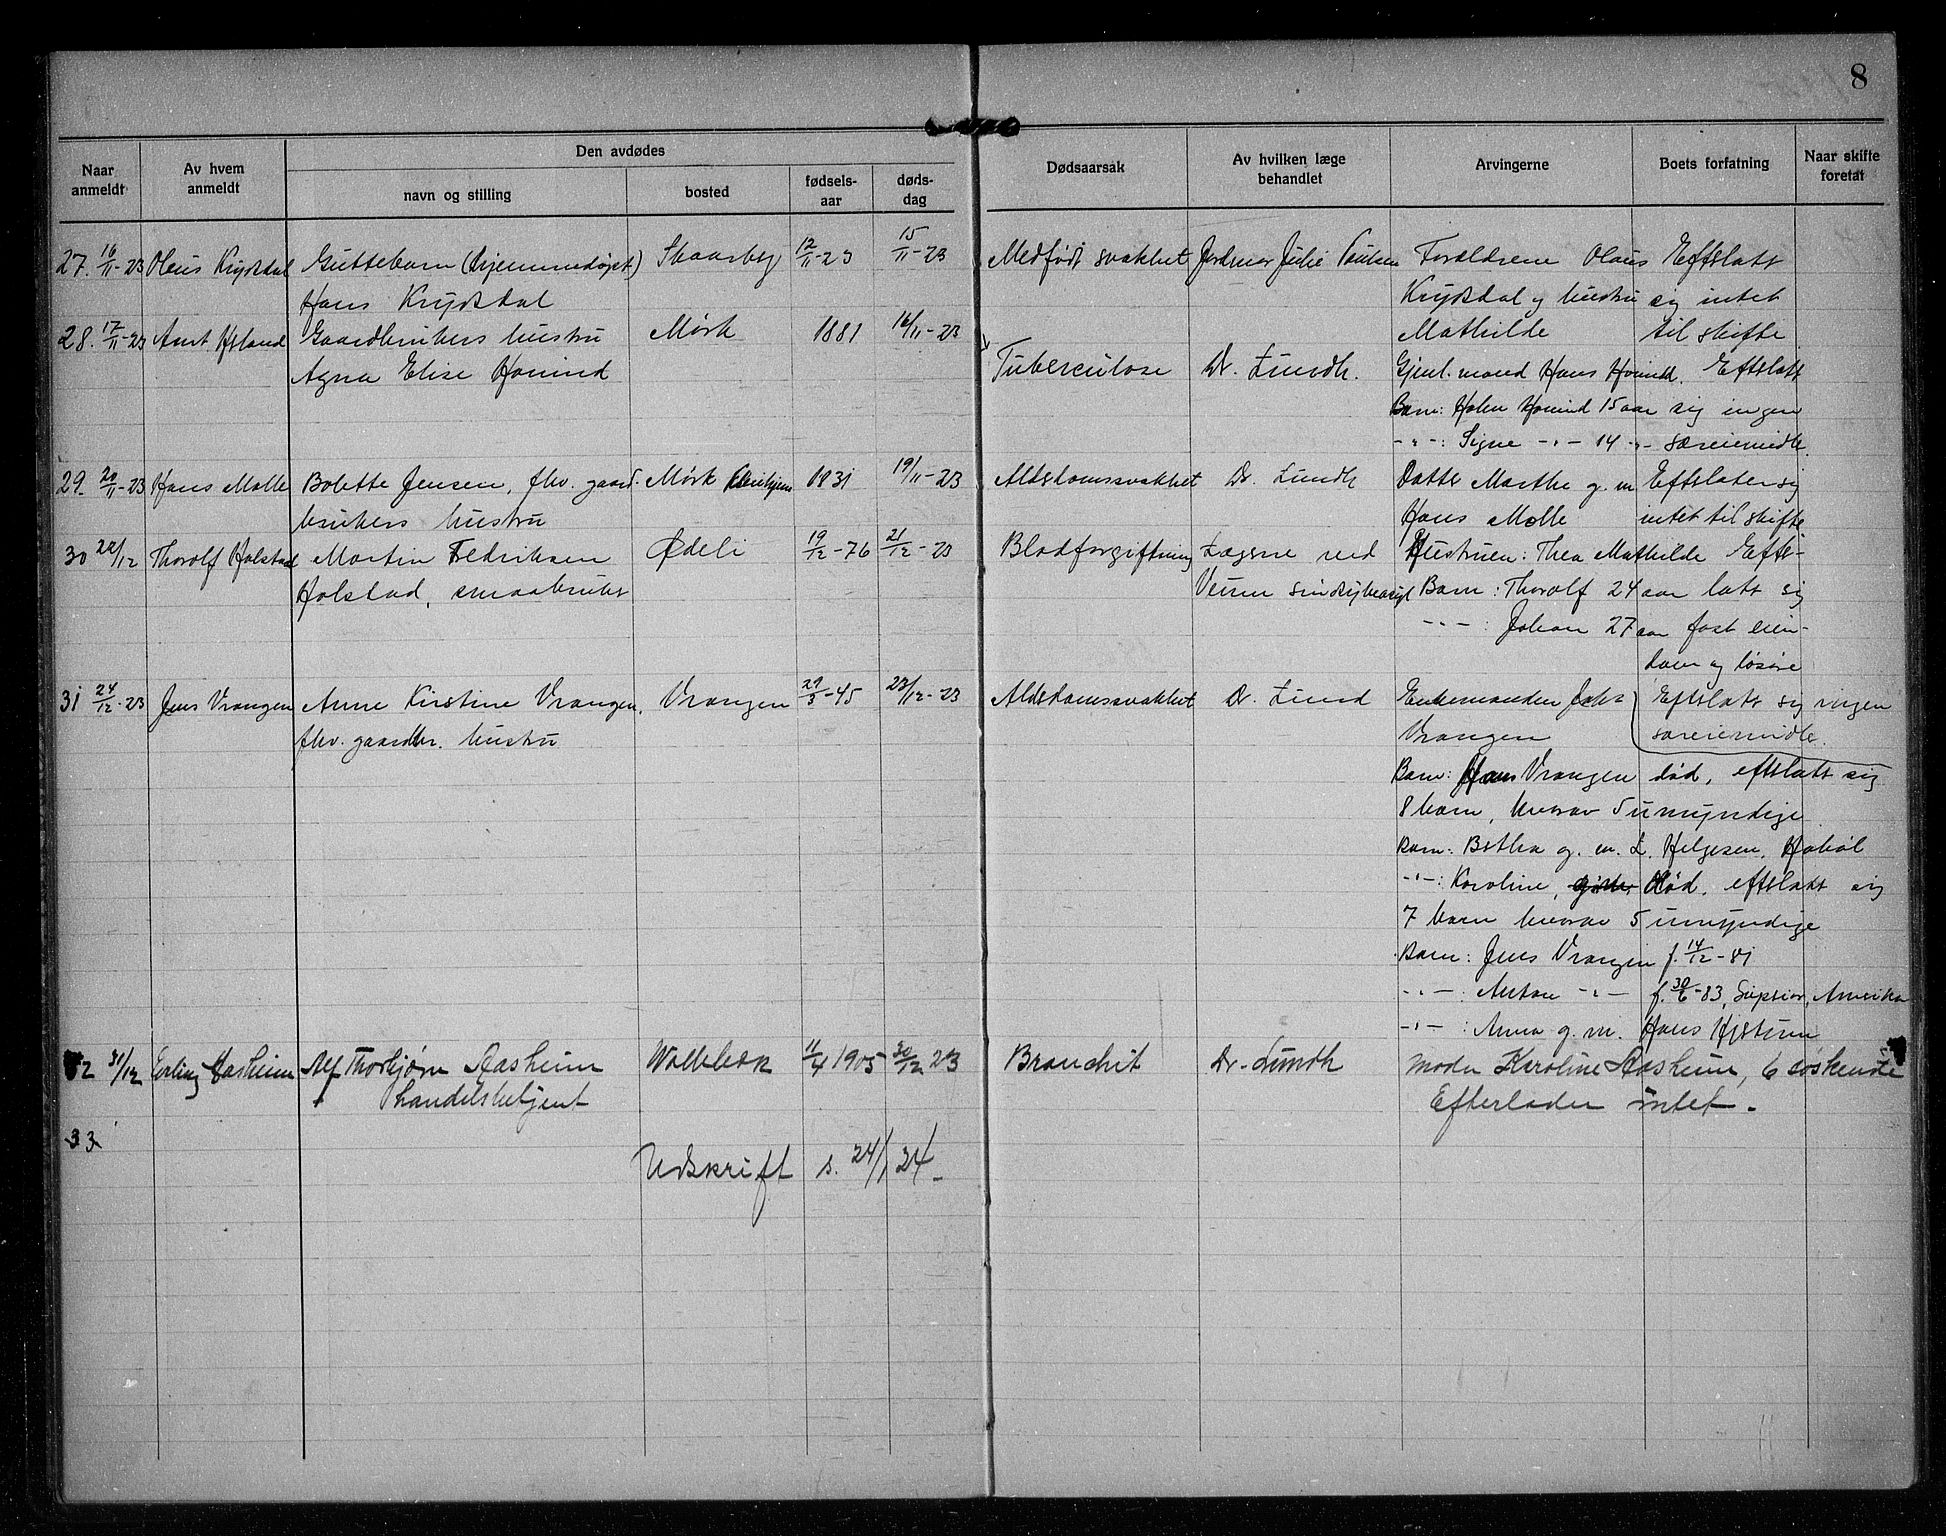 8
Naar anmeldt
Av hvem anmeldt
Den avdødes
navn og stilling
bosted
fødsels-aar
døds-dag
Dødsaarsak
Av hvilken læge behandlet
Arvingerne
Boets forfatning
Naar skifte foretat
27. 16/11-23 Olaus Krydsdal Guttebarn (hjemmedøpt) Skaarberg 12/11-23 15/11-23 Medfødt svakhet Jordmor Julie Paulsen Forældrene Olaus Efterlatt
Hans Krydsdal Krydsdal og hustru sig intet
28. 17/11-23 Gaardbrukers hustru Mørk 1881 16/11-23 Mathilde til skifte
Agna Elise Tuberculose Dr. Lundh. Gjenl. mand Hans Efterlatt
Barn: 15 aar sig ingen
-"-: Signe -"- 14 -"- særeiemidle.
29. 20/11-23 Hans Molle Bolette Jensen, fhv. gaard- Mørk 1831 19/11-23 Alderdomssvakhet Dr. Lundh Datter Marthe g. m. Efterlater sig
brukers hustru Hans Molle intet til skifte
30 22/12 Thorolf Holstad Martin Fredriksen Ødeli 19/12-76 21/12-23 Blodforgiftning Lægerne ved Hustruen: Thea Mathilde Efter-
Holstad, smaabruker Veum sindsykeasyl Barn: Thorolf 24 aar latt sig
-"-: Johan 27 aar fast eien-
dom og løsøre
31 24/12-23 Jens Vrangen Anne Kirstine Vrangen, Vrangen 29/3-45 23/12-23 Alderdomssvakhet Dr. Lund Enkemanden Efterlatt sig ingen
fhv. gaardbr. hustru Vrangen særeiemidle.
Barn: Hans Vrangen død, efterlatt sig
8 barn, hvorav 5 umyndige
Barn: Bertha g. m. L. Helgesen, Hobøl
-"-: Karoline, død, efterlatt sig
7 barn hvorav 5 umyndige
Barn: Jens Vrangen f. 14/12-81
-"-: Anton -"- f. 30/6-83, Superior, Amerika
-"-: Anna g. m. Hans
32 31/12 Erling Aasheim Alf Thorbjørn Aasheim Wolebæk 11/4 1905 30/12 23 Bronchit Dr. Lundh moder Karoline Aasheim, 6 søskende
handelsbetjent Efterlader intet.
33
Udskrift s. 24/1 24